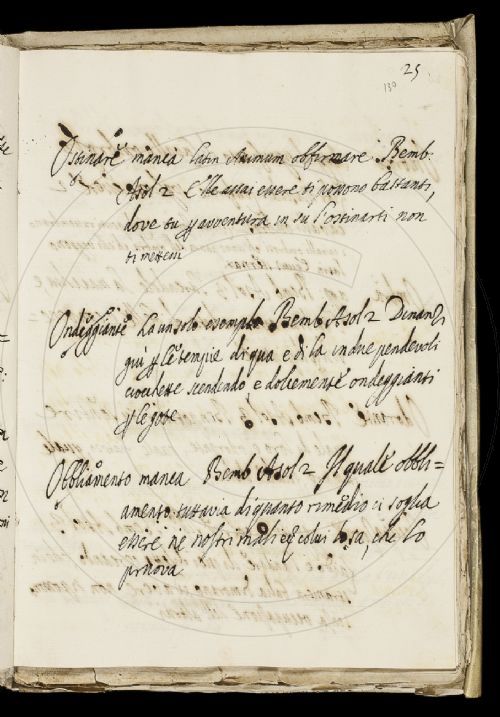 25
130
Ostinare manca latin Animum obfirmare Bemb.
Asol 2 Elle assai essere ti possono bastanti,
dove tu p avventura in su l'ostinarti non
ti mettessi
Ondeggiante ha un solo esempio Bemb Asol 2 Dinanzi
qui p le tempie di qua e di la in due pendevoli
ciocchette scendendo e dolcemente ondeggianti
p le gote
Obbliamento manca Bemb Asol 2 Il quale obbli=
amento tuttavia di quanto rimedio ci soglia
essere ne nostri mali colui lo sa, che lo
pruova